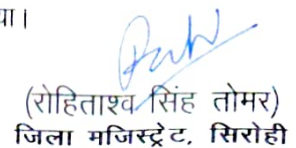 या।
(रोहिताश्व सिंह तोमर)
जिला मजिस्ट्रेट, सिरोही